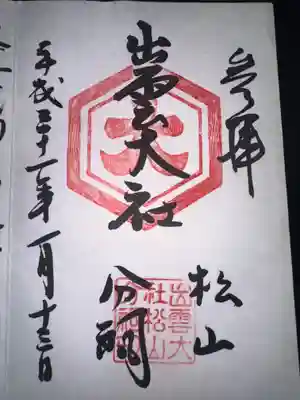 参拝
松山
出雲大社
分祠
大
出雲大
社松山
分祠
平成三十一年一月十三日